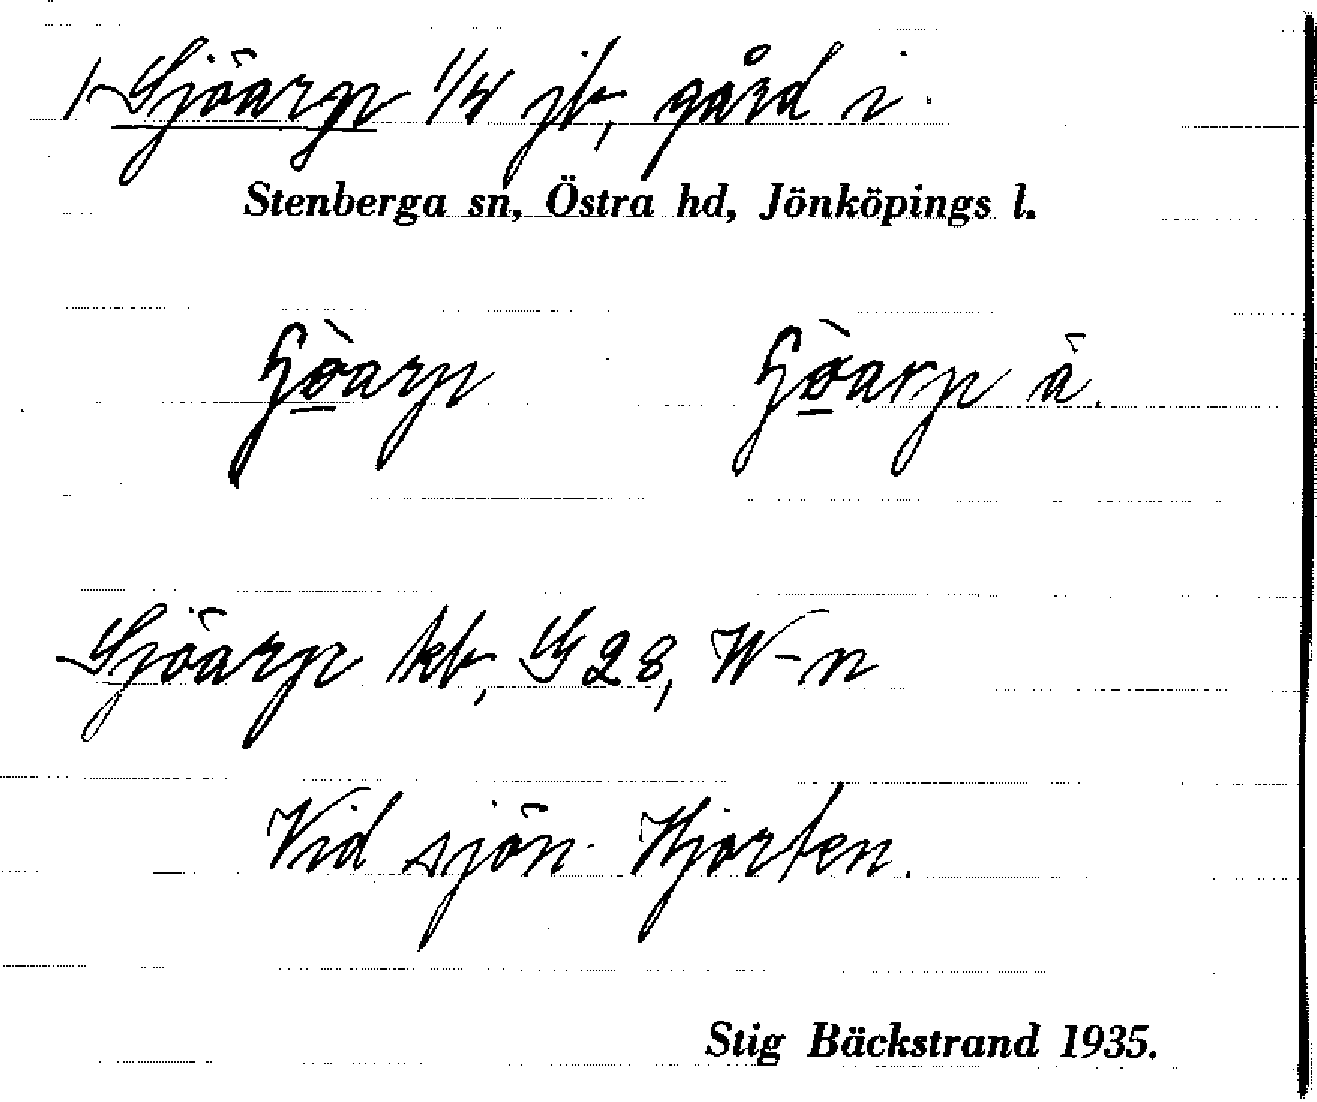 Sjöarp 1/4 jb, gård i
Stenberga sn, Östra hd, Jönköpings l.
Sjöarp kb, G 28, W-n
Vid sjön Hjorten.
Stig Bäckstrand 1935.